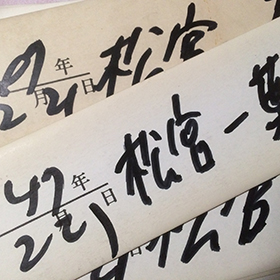 年 松宮
2月21日
47年 松宮一
2月21日
日 松宮